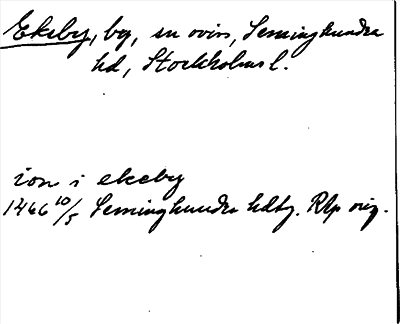 Ekeby, by, sn oviss, Seminghundra
hd, Stockholms l.
ion i ekeby
1466 10/5 Seminghundra hdtg. RAp orig.